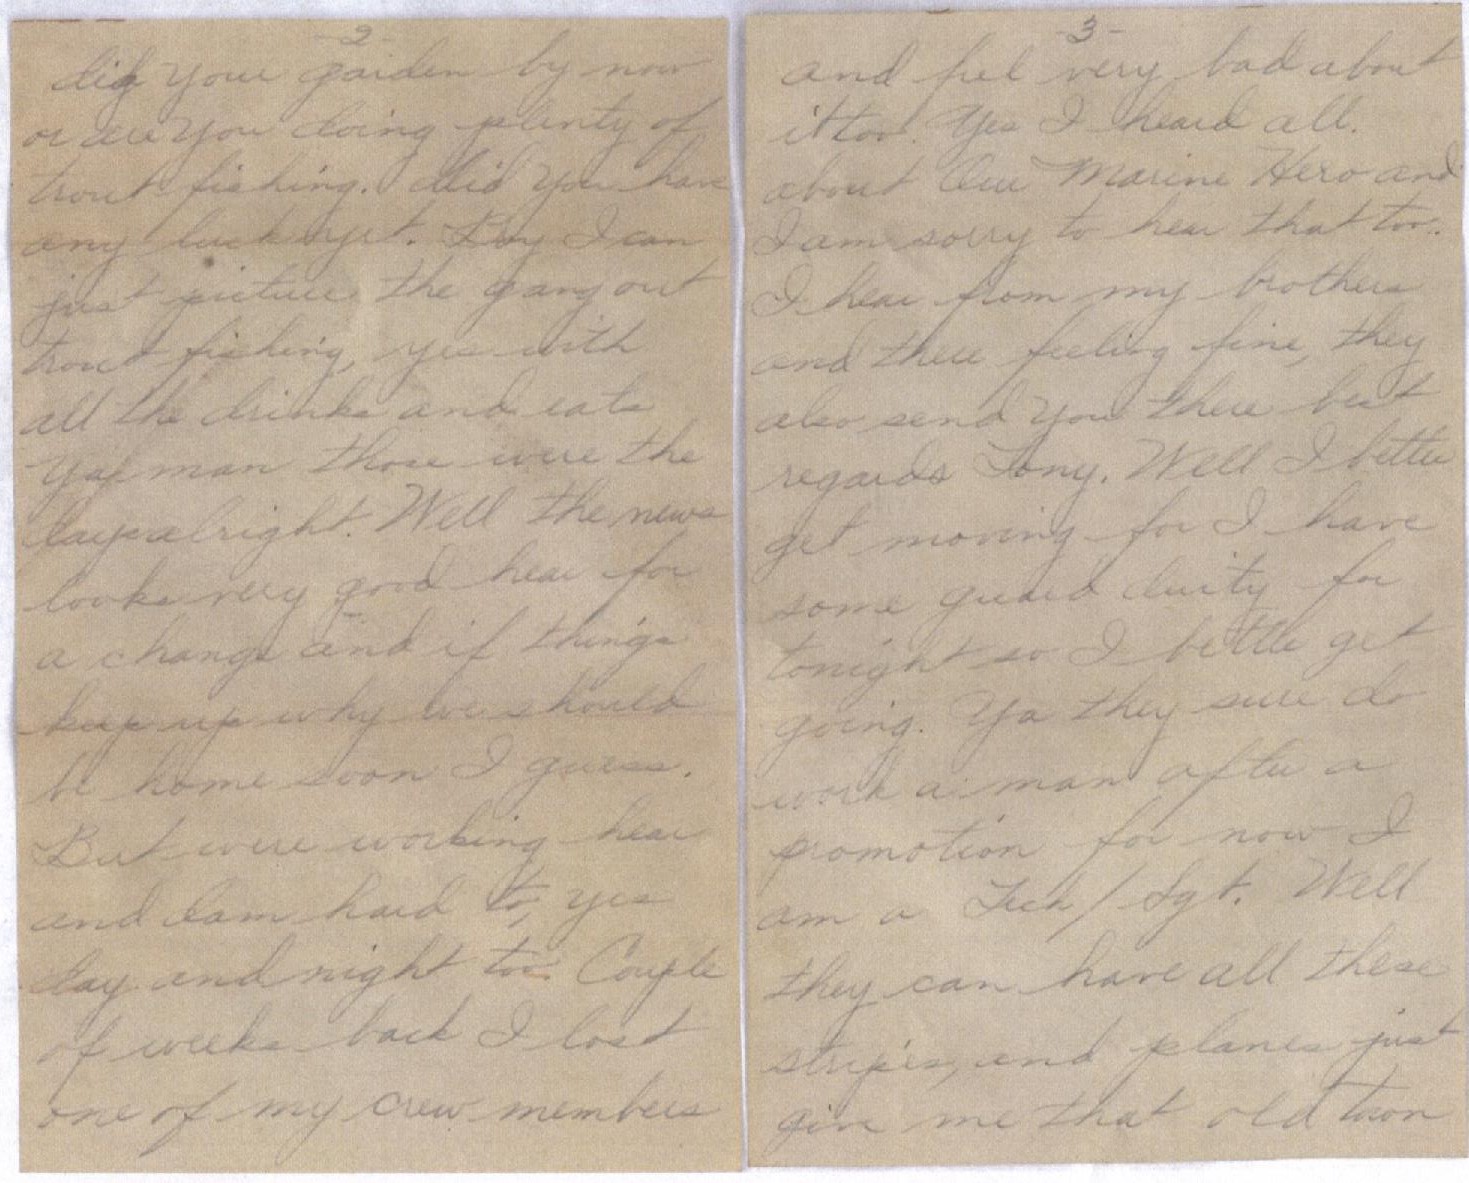 -2-
dig your garden by now
or are you doing plenty of
trout fishing. Did you have
any luck yet. Boy I can
just picture the gang out
trout fishing, yes with
all the drinks and eats
Yap man those were the
days alright. Well the news
looks very good hear for
a change and if things
keep up why we should
be home soon I guess.
But were working hear
and dam hard to, yes
day and night too. Couple
of weeks back I lost
one of my crew members
-3-
and feel very bad about
it too. Yes I heard all.
about Our Marine Hero and
I am sorry to hear that too.
I hear from my brothers
and there feeling fine, they
also send you there best
regards Tony. Well I better
get moving for I have
some guard duity for
tonight so I bettle get
going. Ya they sure do
work a man after a
promotion for now I
am a Tech/Sgt. Well
they can have all these
stripes, and planes just
give me that old town